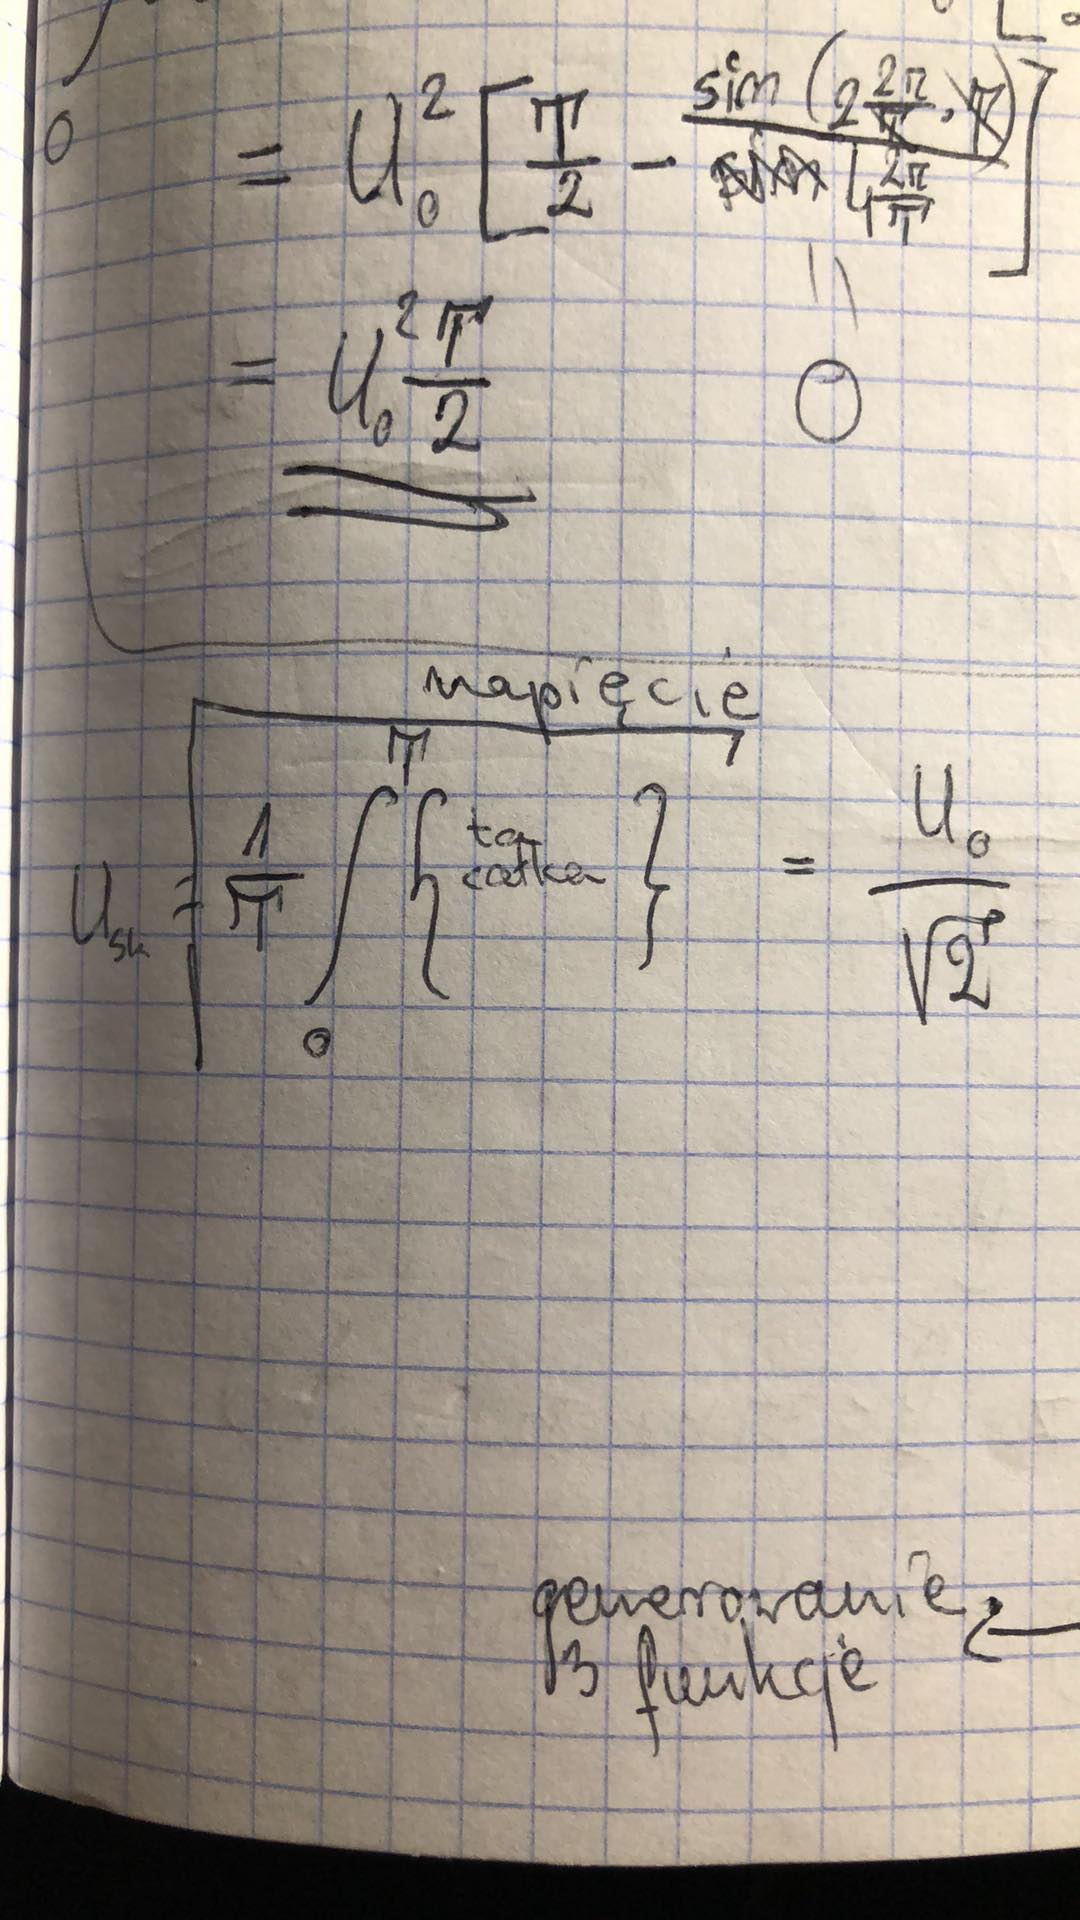 0
= U₀² [T/2 - sin(2 2π/T · T) / 4 2π/T]
= U₀² T/2
||
0
napięcie
U_sk = √(1/T ∫₀ᵀ { ta całka }) = U₀/√2
generowanie
3 funkcje